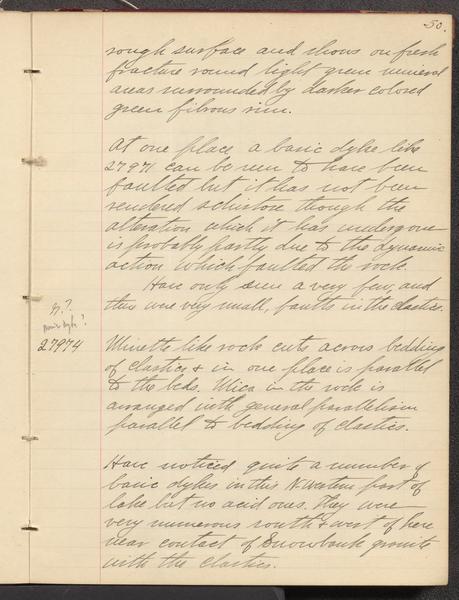 50.
rough surface and shows on fresh
fracture round light green mineral
areas surrounded by darker colored
green fibrous rim.
At one place a basic dyke like
27971 can be seen to have been
faulted but it has not been
rendered schistose though the
alteration which it has undergone
is probably partly due to the dynamic
action which faulted the rock.
Have only seen a very few, and
they were very small, faults in the clastics.
27974
Minette like rock cuts across bedding
of clastics & in one place is parallel
to the beds. Mica in the rock is
arranged with general parallelism
parallel to bedding of clastics.
Have noticed quite a number of
basic dykes in this N Western part of
lake but no acid ones. They were
very numerous south & west of here
near contact of Snowbank granite
with the clastics.